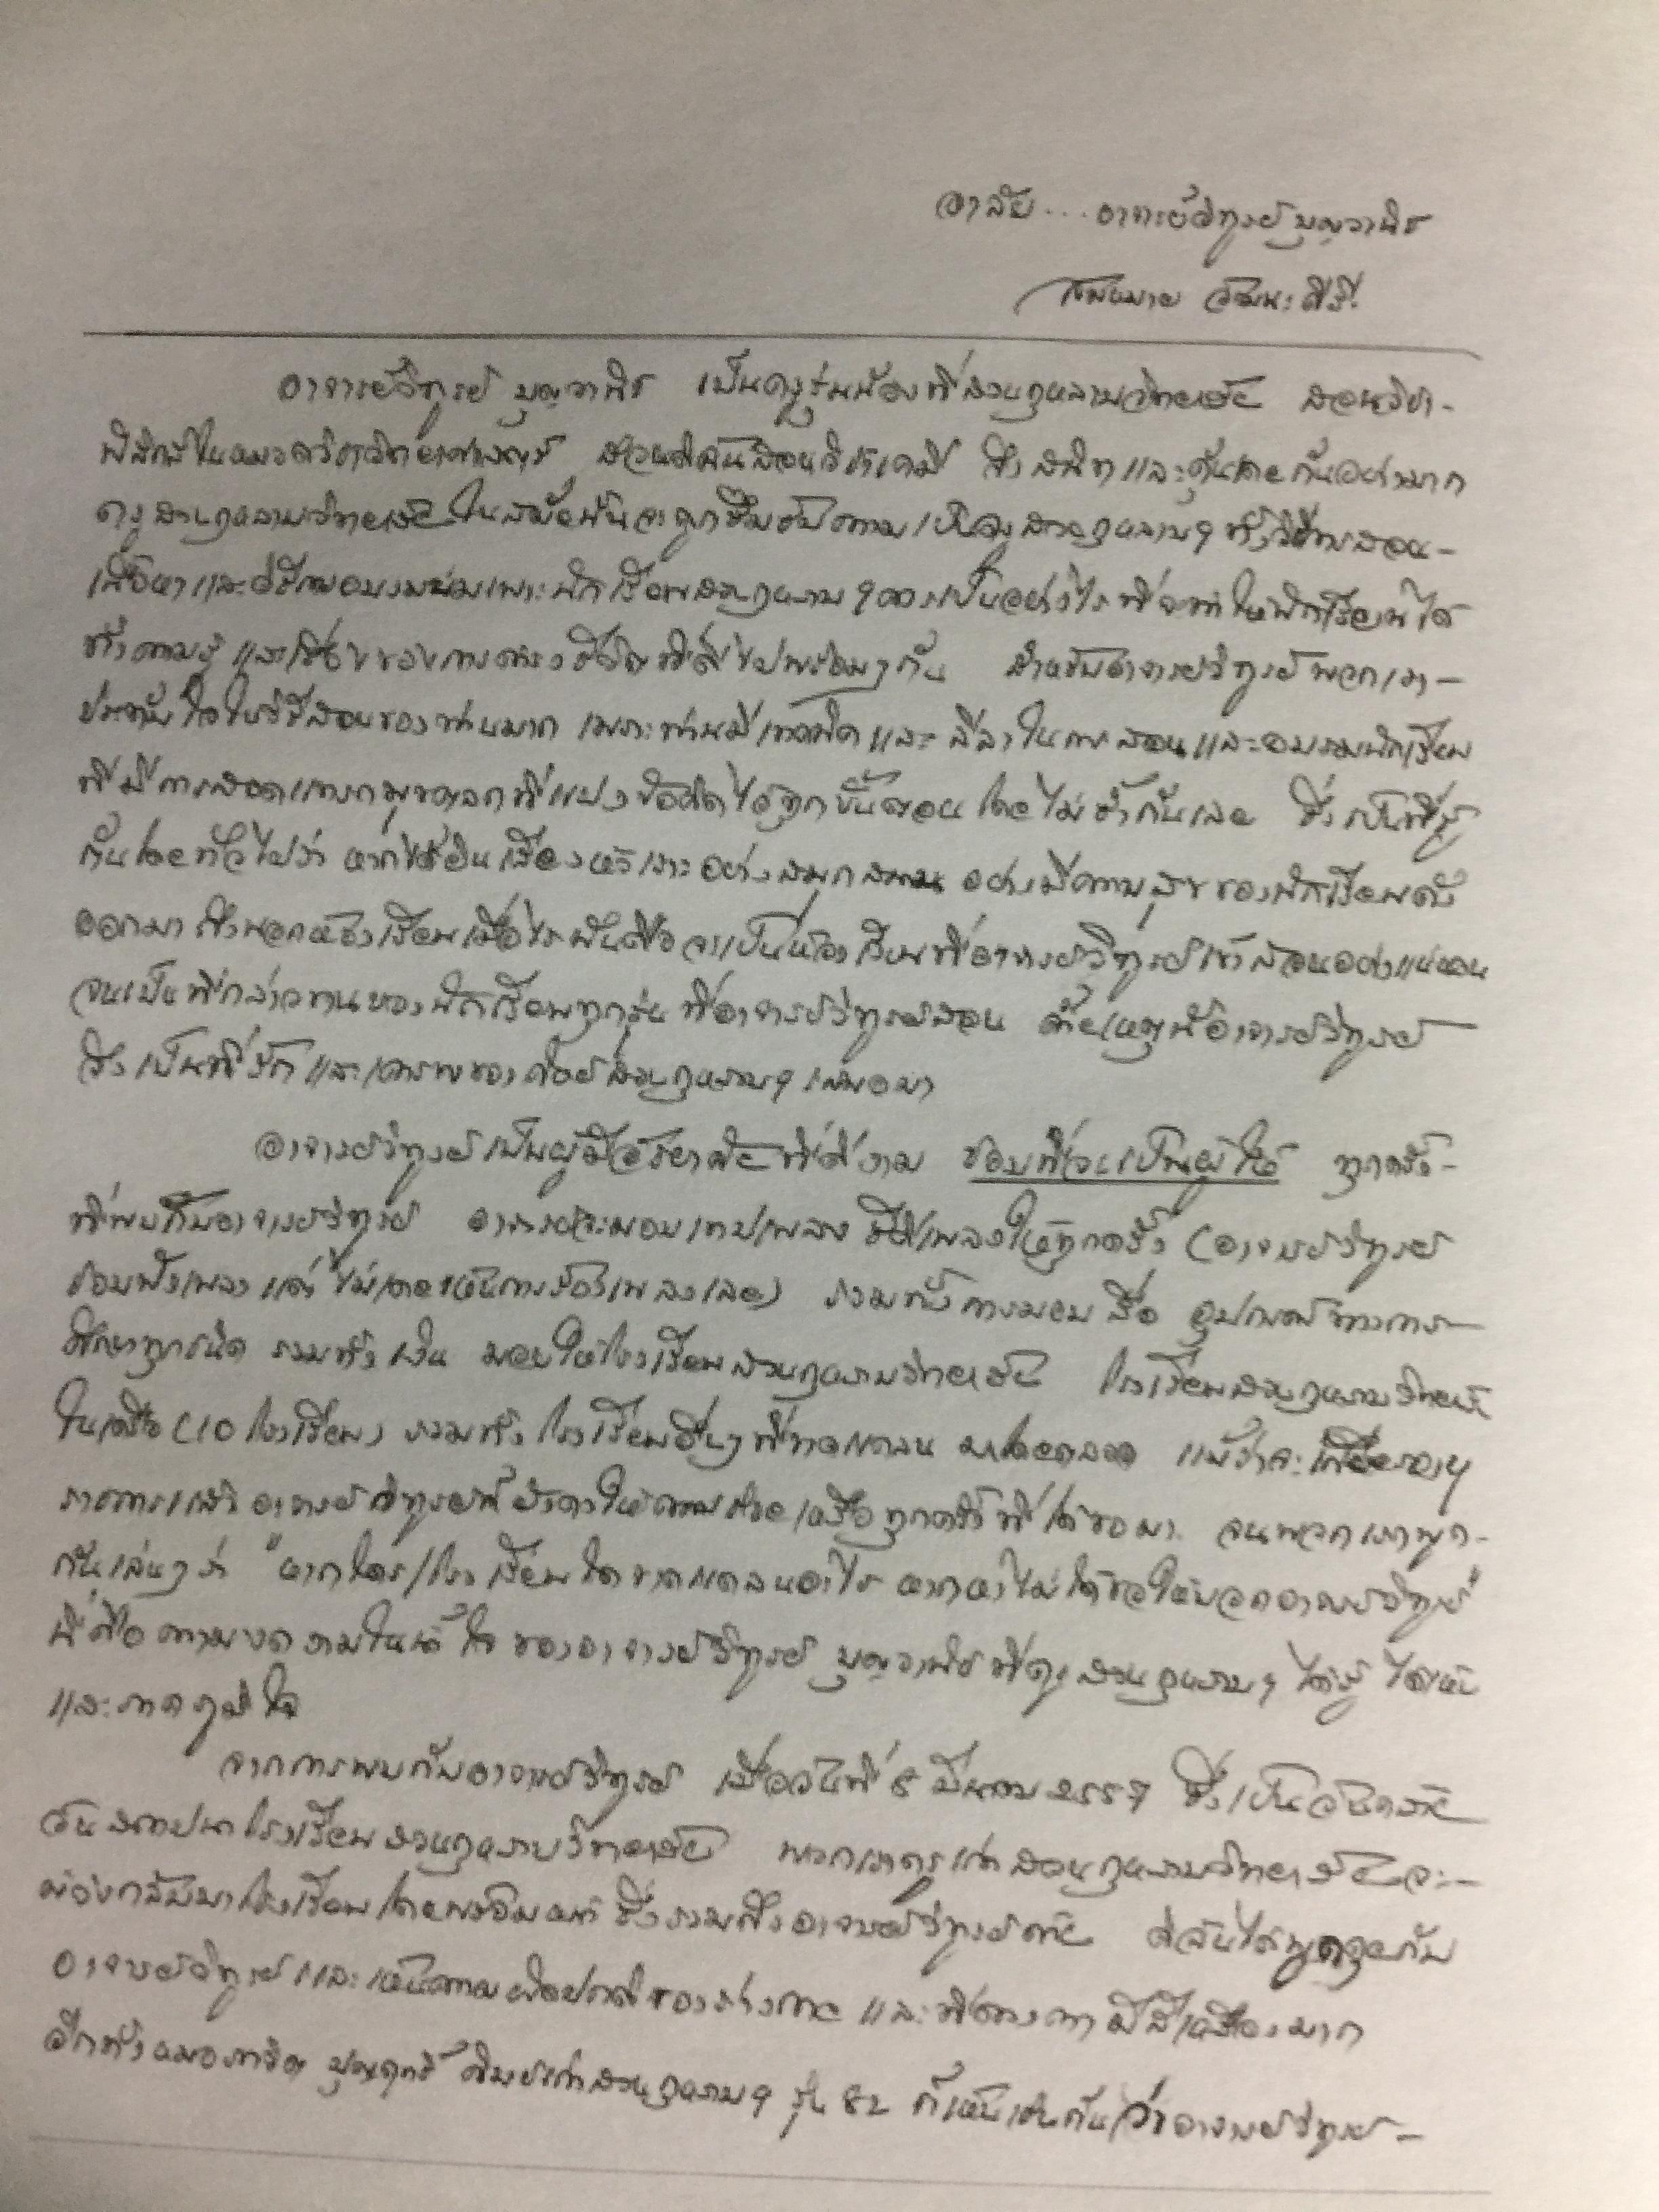 อาลัย....อาจารย์วิฑูรย์ บุญวานิช
สมหมาย วัฒนะคีรี
อาจารย์วิฑูรย์ บุญวานิช เป็นครูรุ่นน้องที่สวนกุหลาบวิทยาลัย สอนวิชา-
ฟิสิกส์ในหมวดวิชาวิทยาศาสตร์ ส่วนดิฉันสอนวิชาเคมี จึงสนิทและคุ้นเคยกันอย่างมาก
ครูสวนกุหลาบวิทยาลัยในสมัยนั้นจะถูกซึมซับความเป็นครูสวนกุหลาบฯ ทั้งวิธีการสอน-
เนื้อหาและวิธีการอบรมบ่มเพาะนักเรียนสวนกุหลาบฯ ควรเป็นอย่างไร ที่จะทำให้นักเรียนได้
ทั้งความรู้ และเรื่องของการดำรงชีวิตที่ดีไปพร้อมๆกัน สำหรับอาจารย์วิฑูรย์พวกเรา-
ประทับใจในวิธีสอนของท่านมาก เพราะท่านมีเทคนิคและลีลาในการสอนและอบรมนักเรียน
ที่มีการสอดแทรกมุขตลกที่แฝงข้อคิดได้ทุกขั้นตอน โดยไม่ซ้ำกันเลย ซึ่งเป็นที่รู้
กันโดยทั่วไปว่า หากได้ยินเสียงหัวเราะอย่างสนุกสนาน อย่างมีความสุขของนักเรียนดัง
ออกมาถึงนอกห้องเรียนเมื่อไร นั่นคือจะเป็นห้องเรียนที่อาจารย์วิฑูรย์เข้าสอนอย่างแน่นอน
จนเป็นที่กล่าวขานของนักเรียนทุกรุ่นที่อาจารย์วิฑูรย์สอน ด้วยเหตุนี้อาจารย์วิฑูรย์
จึงเป็นที่รักและเคารพของศิษย์สวนกุหลาบฯ เสมอมา
อาจารย์วิฑูรย์เป็นผู้มีอัธยาศัยที่ดีงาม ชอบที่จะเป็นผู้ให้ ทุกครั้ง-
ที่พบกับอาจารย์วิฑูรย์ อาจารย์จะมอบเทปเพลง ซีดีเพลงให้ทุกครั้ง (อาจารย์วิฑูรย์
ชอบฟังเพลง แต่ไม่เคยเห็นการร้องเพลงเลย) รวมทั้งการมอบสื่อ อุปกรณ์ทางการ-
ศึกษาทุกชนิด รวมทั้งเงิน มอบให้โรงเรียนสวนกุหลาบวิทยาลัย โรงเรียนสวนกุหลาบวิทยาลัย
ในเครือ (10 โรงเรียน) รวมทั้งโรงเรียนอื่นๆที่ขาดแคลน มาโดยตลอด แม้ว่าจะเกษียณอายุ
ราชการแล้ว อาจารย์วิฑูรย์ก็ยังคงให้ความช่วยเหลือทุกครั้งที่ได้ขอมา จนพวกเราพูด-
กันเล่นๆว่า "หากใคร/โรงเรียนใดขาดแคลนอะไร หากหาไม่ได้ขอให้บอกอาจารย์วิฑูรย์"
นี่คือความงดงามในน้ำใจของอาจารย์วิฑูรย์ บุญวานิช ที่ครูสวนกุหลาบฯ ได้รู้ ได้เห็น
และภาคภูมิใจ
จากการพบกับอาจารย์วิฑูรย์ เมื่อวันที่ 8 มีนาคม ซึ่งเป็นวันคล้าย
วันสถาปนาโรงเรียนสวนกุหลาบวิทยาลัย พวกเราครูเก่าสวนกุหลาบวิทยาลัยจะ-
ต้องกลับมาโรงเรียนโดยพร้อมหน้า ซึ่งรวมถึงอาจารย์วิฑูรย์ด้วย ดิฉันได้พูดคุยกับ
อาจารย์วิฑูรย์และเห็นความผิดปกติของร่างกาย และที่ดวงตามีสีเหลืองมาก
อีกทั้งหมอ ศิษย์เก่าสวนกุหลาบฯ รุ่น 82 ก็เห็นเช่นกันว่าอาจารย์วิฑูรย์-